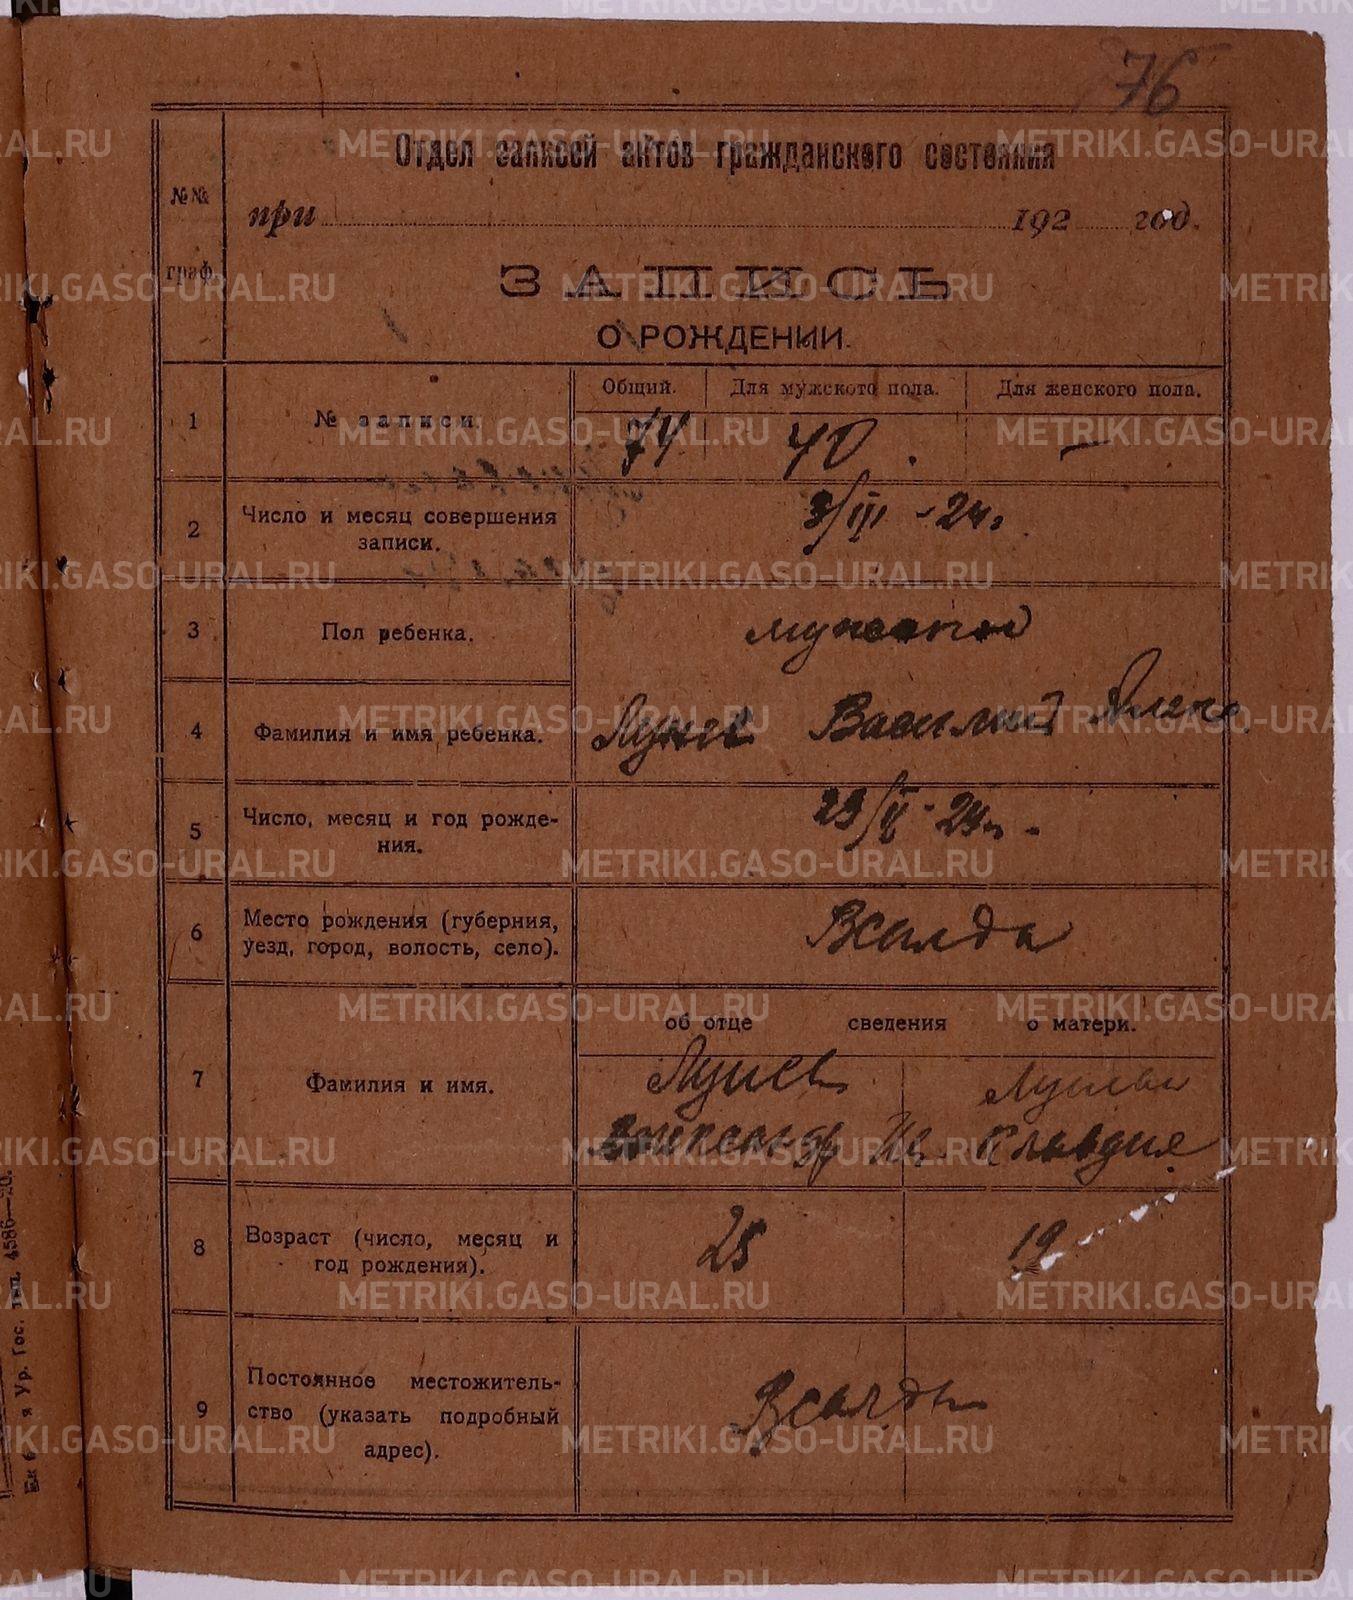 76
Отдел записей актов гражданского состояния
№№
граф.
при 192 год.
ЗАПИСЬ
О РОЖДЕНИИ.
Общий. Для мужского пола. Для женского пола.
1 № записи. 74 40 —
2 Число и месяц совершения
записи.
3/III - 24г.
3 Пол ребенка. мужской
4 Фамилия и имя ребенка. Василий Алекс.
5 Число, месяц и год рожде-
ния.
23/II - 24г.
6 Место рождения (губерния,
уезд, город, волость, село).
об отце сведения о матери.
7 Фамилия и имя.
Клавдия
8 Возраст (число, месяц и
год рождения).
25 19
9 Постоянное местожитель-
ство (указать подробный
адрес).
Ур. Гос. тип. 4586—20.
METRIKI.GASO-URAL.RU